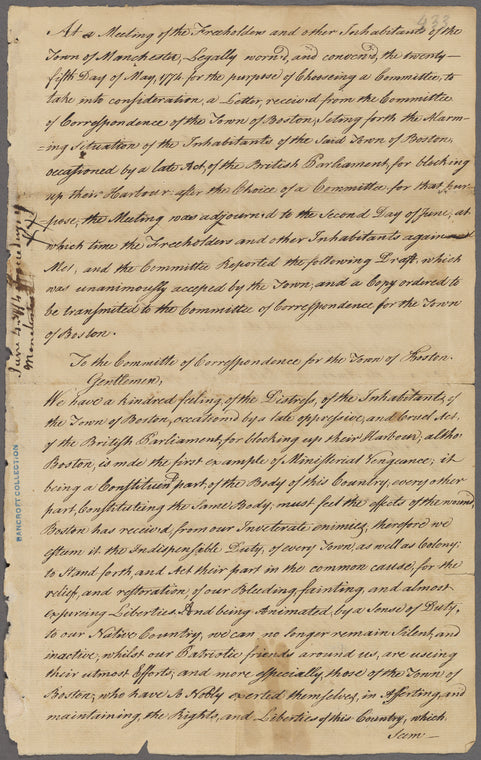 433
At a Meeting of the Freeholders and other Inhabitants of the
Town of Manchester, Legally worn'd, and conven'd, the twenty-
fifth Day of May, 1774 for the purpose of Chooseing a Committee, to
take into consideration, a Letter, received from the Committee
of Correspondence of the Town of Boston, Seting forth the Alarm-
=ing Situation of the Inhabitants of the Said Town of Boston,
occasioned by a late Act, of the British Parliament, for blocking
up their Harbour after the Choice of a Committee for that pur-
=pose, the Meeting was adjourned to the Second Day of June, at
which time the Freeholders and other Inhabitants again
Met, and the Committee Reported the following Draft, which
was unanimously acceped by the Town, and a Copy ordered to
be transmited to the Committee of Correspondence for the Town
of Boston.
To the Committe of Correspondence for the Town of Boston
Gentlemen,
We have a kindred feling, of the Distress, of the Inhabitants, of
the Town of Boston, occation'd by a late oppresive, and Cruel Act,
of the British Parliament, for blocking up their Harbour, altho
Boston, is mde the first example of Ministerial Vengeance; it
being a Constituent part, of the Body of this Country, every other
part, Constituting the Same Body, must feel the effects of the wound,
Boston has receiv'd from our Inveterate enimies, therefore we
esteem it the Indispensable Duty, of every Town, as well as Colony;
to Stand forth, and Act their part in the common cause, for the
relief, and restoration, of our Bleeding, fainting, and almost
expiring Liberties. And being Animated, by a Sense of Duty,
to our Native Country, we can no longer remain Silent, and
inactive, whilst our Patriotic friends around us, are useing
their utmost Efforts, and more especially, those of the Town of
Boston, who have So Nobly exerted themselves, in Asserting, and
maintaining, the Rights, and Liberties of this Country, which
Seem-
BANCROFT COLLECTION